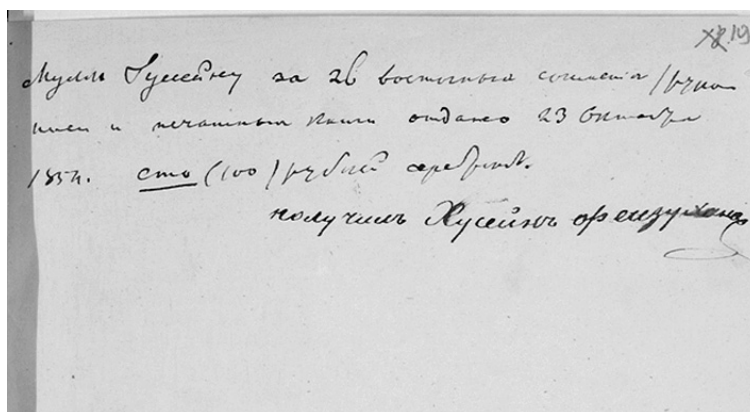 19
Мулле Гусейну за 26 восточных сочинения /руко
писи и печатныя книги отдано 23 Октября
185 г. сто (100) рублей серебромъ.
получилъ Хусейнъ фейзухано